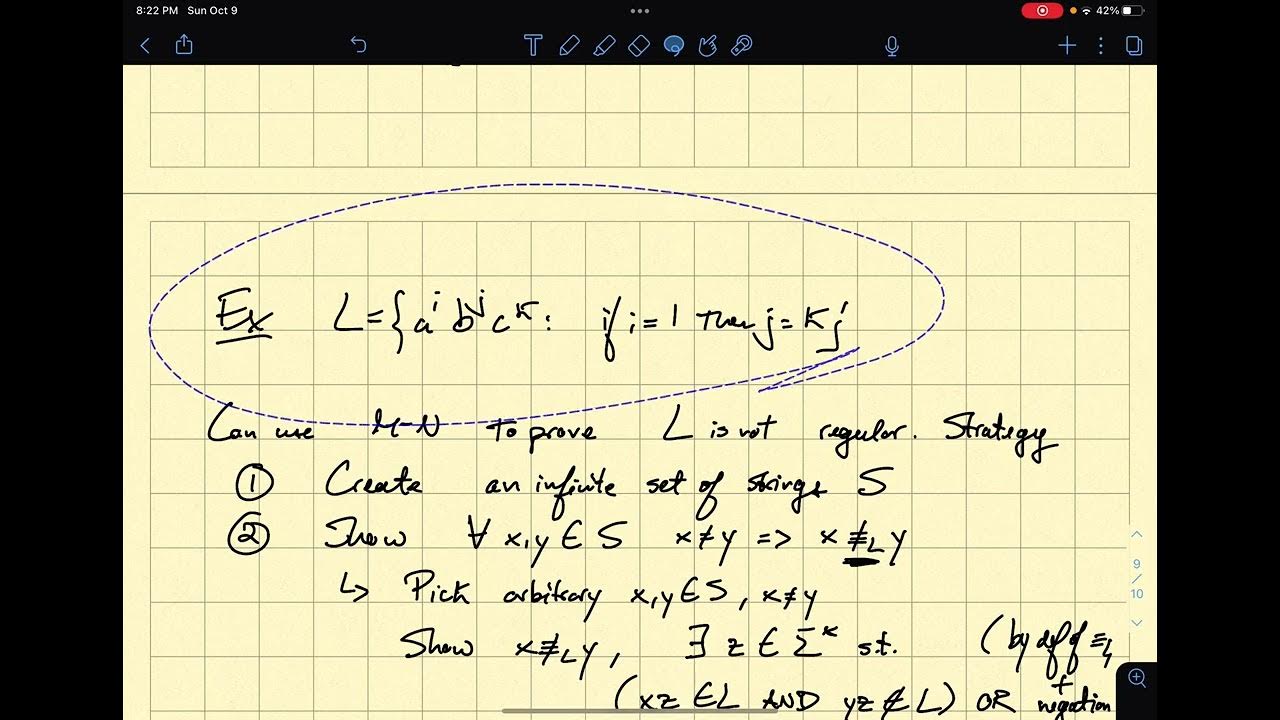 8:22 PM Sun Oct 9
42%
Ex L = { a^i b^j c^k : if i = 1 then j = k }
Can use M-N to prove L is not regular. Strategy
① Create an infinite set of strings S
② Show ∀ x,y ∈ S x ≠ y => x ≢_L y
9
/
10
↳ Pick arbitrary x,y ∈ S, x ≠ y
Show x ≢_L y, ∃ z ∈ Σ* s.t. (by def of ≡_L
+
(xz ∈ L AND yz ∉ L) OR negation